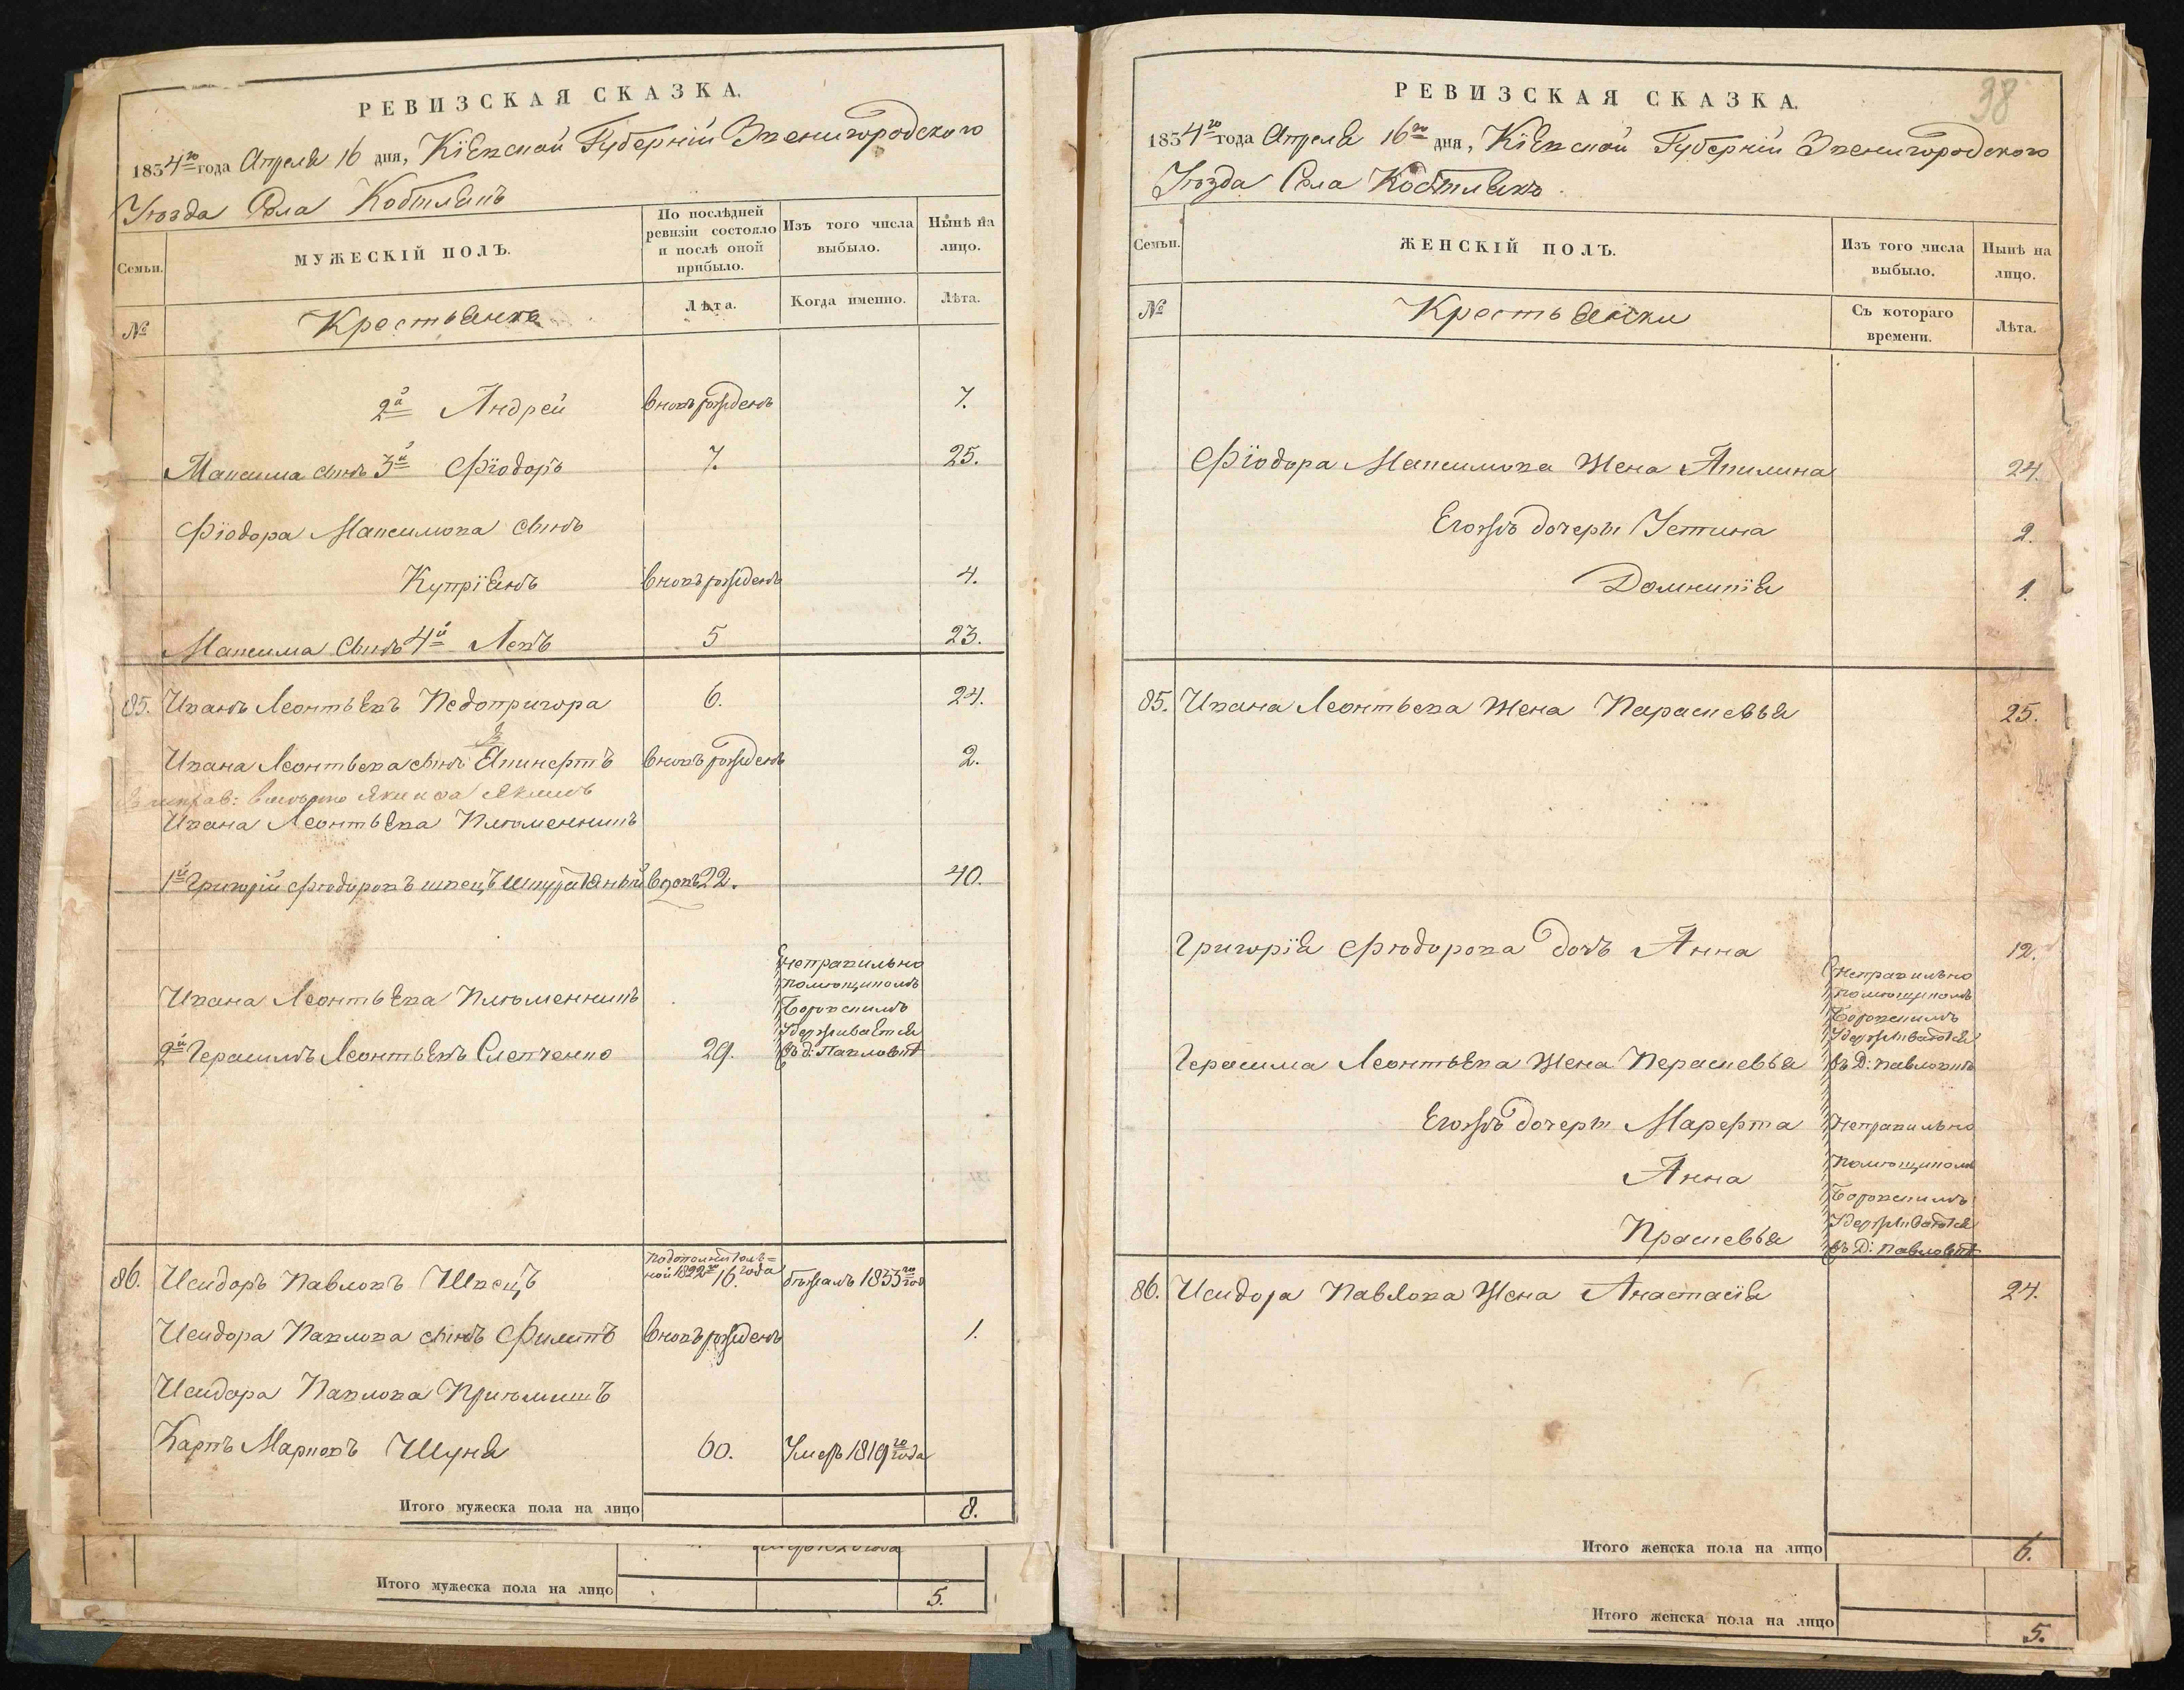 РЕВИЗСКАЯ СКАЗКА.
1834го года Апреля 16 дня, Кіевской Губерніи Звенигородского
Уезда Села
Семьи.
МУЖЕСКІЙ ПОЛЪ.
По послѣдней ревизіи состояло и послѣ оной прибыло.
Изъ того числа выбыло.
Нынѣ на лицо.
№
Крестьянъ
Лѣта.
Когда именно.
Лѣта.
2й Андрей вновь рожденъ 7.
Максима сынъ 3й Фіодоръ 7. 25.
Фіодора Максимова сынъ
Купріянъ вновь рожденъ 4.
Максима сынъ 4й Левъ 5 23.
85. Иванъ Леонтьевъ Недопригора 6. 24.
Ивана Леонтьева сынъ вновь рожденъ 2.
Ивана Леонтьева Племенникъ
1й Григорій Фіодоровъ швецъ 22. 40.
неправильно
помещикомъ
Ивана Леонтьева Племенникъ
Удерживается
2й Герасимъ Леонтьевъ Слепченко 29. въ д: Павловке
86. Исидоръ Павловъ Швецъ
Подополнительной 1822го года 16. бежалъ 1833го год
Исидора Павлова сынъ Филипъ вновь рожденъ 1.
Исидора Павлова Приемишъ
Карпъ Марковъ Шуня 60. Умеръ 1819го года
Итого мужеска пола на лицо 8.
Итого мужеска пола на лицо 5.
38
РЕВИЗСКАЯ СКАЗКА.
1834го года Апреля 16го дня, Кіевской Губерніи Звенигородского
Уезда Села
Семьи.
ЖЕНСКІЙ ПОЛЪ.
Изъ того числа выбыло.
Нынѣ на лицо.
№
Крестьянки
Съ котораго времени.
Лѣта.
Фіодора Максимова жена Акилина 24.
Егожъ дочери Устина 2.
Домникія 1.
85. Ивана Леонтьева жена Параскевья 25.
Григорія Фіодорова дочь Анна 12.
неправильно
помещикомъ
Удерживается
Герасима Леонтьева жена Пераскевья въ Д: Павловке
Егожъ дочери Марефта неправильно
Анна помещикомъ
Удерживаются
Праскевья въ Д: Павловке
86. Исидора Павлова жена Анастасія 24.
Итого женска пола на лицо 6.
Итого женска пола на лицо 5.